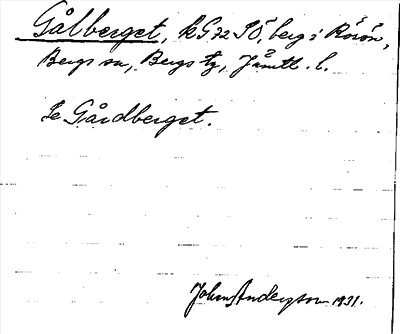 Gålberget, k G 72 SÖ, berg i Rörön,
Bergs sn, Bergs tg, Jämtl. l.
Se Gårdberget.
John Anderson 1931.